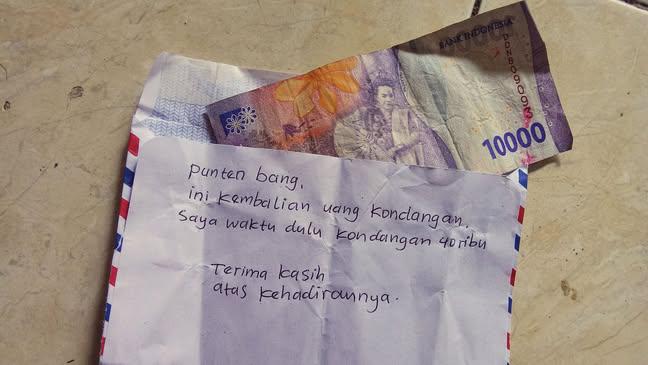 BANK INDONESIA
DDN809093
10000
Punten bang,
ini kembalian uang kondangan.
Saya waktu dulu kondangan 40ribu
Terima kasih
atas kehadirannya.